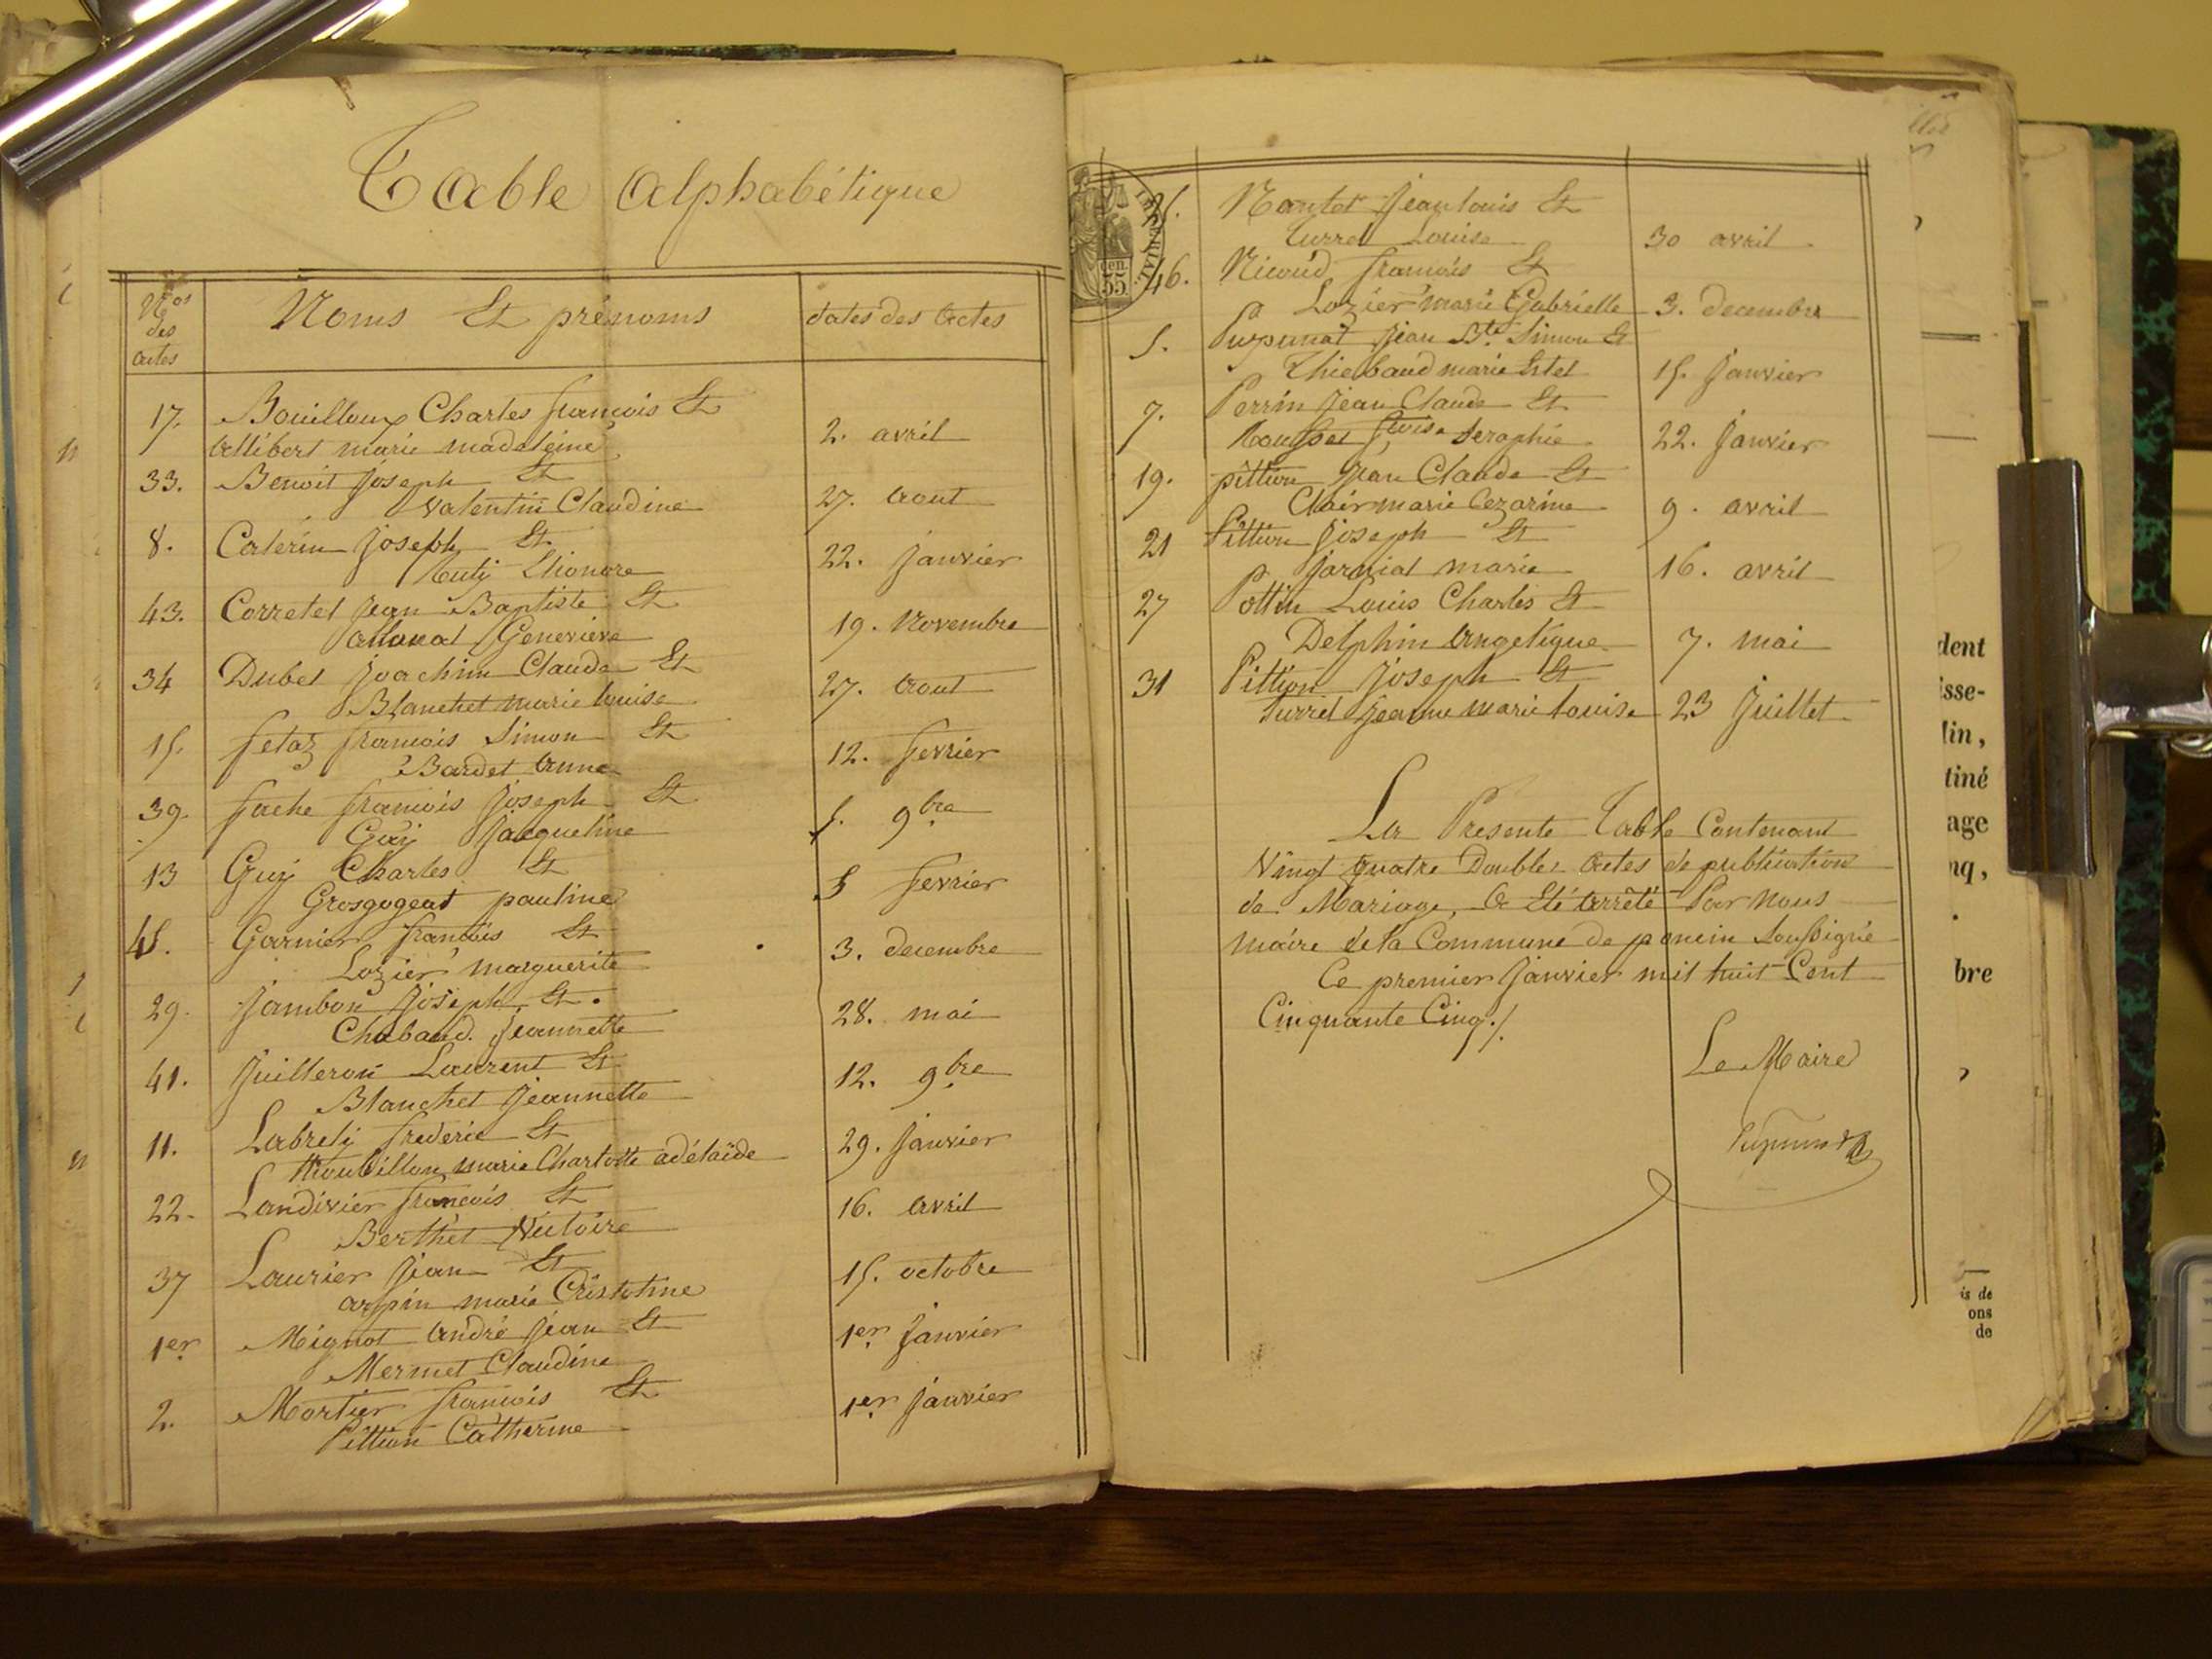 Table Alphabétique
Nos des actes
Noms Et prénoms
dates des Actes
17. Bouilloux Charles françois Et
Allibert marie madeleine 2. avril
33. Benoit Joseph Et
Valentin Claudine 27. Aout
8. Caterin Joseph Et
Elionore 22. janvier
43. Corretel Jean Baptiste Et
Genevieve 19. Novembre
34 Dubet Joachim Claude Et
Blanchet marie louise 27. Aout
15. fetaz francois Simon Et
Bardet Anne 12. fevrier
39. fache francois Joseph Et
Guy Jacqueline 5. 9bre
13 Guy Charles Et
Grosgogeat pauline 5 fevrier
45. Garnier francois Et
Lozier marguerite 3. decembre
29. Jambon Joseph Et.
Chabaud. Jeannette 28. mai
41. Juilleron Laurent Et
Blanchet Jeannette 12. 9bre
11. Labrely frederic Et
thoubillon marie Charlotte adélaïde 29. Janvier
22. Landivier francois Et
Berthet Victoire 16. Avril
37 Laurier Jean Et
arpin marie Cristotine 15. octobre
1er Mignot André Jean Et
Mermet Claudine 1er Janvier
2. Mortier francois Et
Pittion Catherine 1er janvier
IMPERIAL
55
25. Nantet Jean louis Et
turrel Louise 30 avril
46. Nicoud francois Et
Lozier marie Gabrielle 3. decembre
5. Pupunat Jean Bte Simon Et
Thiebaud marie Estel 15. Janvier
7. Perrin Jean Claude Et
Rousset Seraphie 22. Janvier
19. pittion Jean Claude Et
Clair marie Cezarine 9. avril
21 Pittion Joseph Et
marie 16. avril
27 Pottin Louis Charles Et
Delphin Angelique 7. mai
31 Pittion Joseph Et
turrel Jeanne marie louise 23 Juillet
La Presente Table Contenant
Vingt quatre Doubles Actes de publication
de Mariage, A Eté Arrêté Par Nous
maire de la Commune de poncin Soussigné
Ce premier Janvier mil huit Cent
Cinquante Cinq./.
Le Maire
Pupunat
dent
isse-
lin,
tiné
age
nq,
bre
is de
ons
de